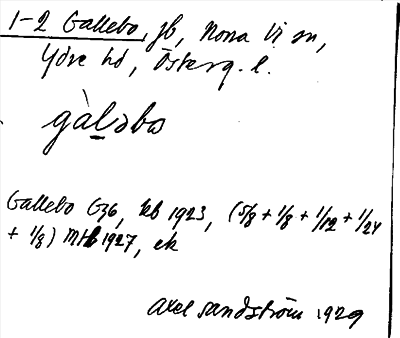 1-2 Gallebo, gb, Norra Vi sn,
Ydre hd, Österg. l.
gàlǝbo
Gallebo G36, kb 1923, (5/8 + 1/8 + 1/12 + 1/24
+ 1/8) Mtl 1927, ek
Axel Sandström 1929